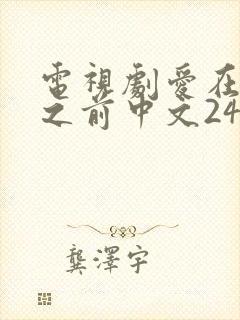 電視劇愛在
之前中文24
龔澤宇